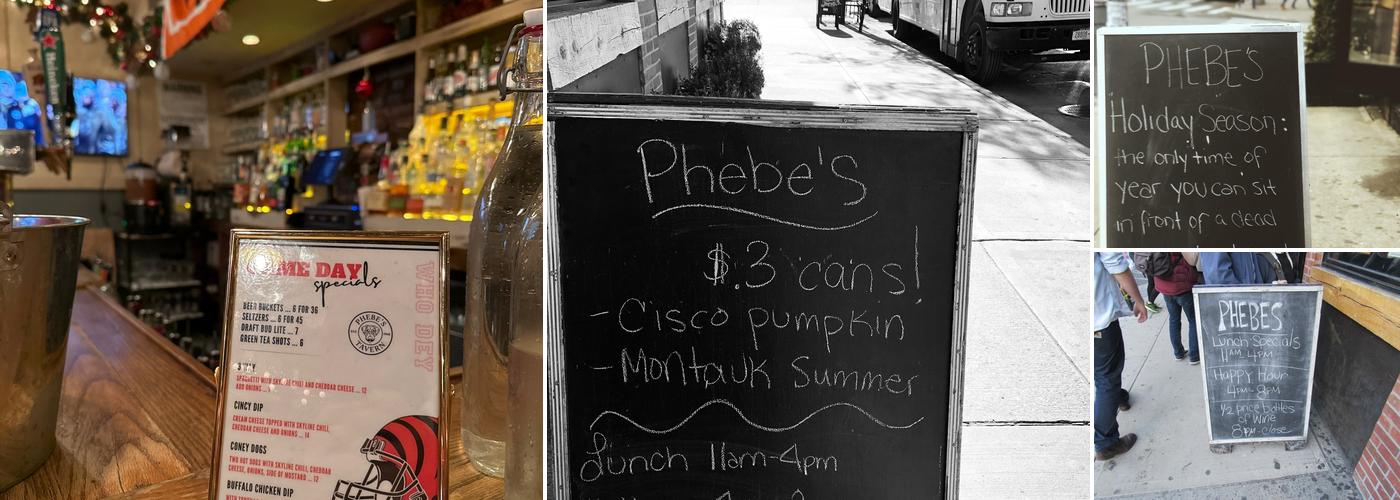 Heineken
WARNING
GAME DAY
specials
WHO DEY
BEER BUCKETS ... 6 FOR 36
SELTZERS ... 6 FOR 45
DRAFT BUD LITE ... 7
GREEN TEA SHOTS ... 6
PHEBE'S
TAVERN
3 WAY
SPAGHETTI WITH SKYLINE CHILI AND CHEDDAR CHEESE ... 12
ADD ONIONS
CINCY DIP
CREAM CHEESE TOPPED WITH SKYLINE CHILI,
CHEDDAR CHEESE AND ONIONS ... 14
CONEY DOGS
TWO HOT DOGS WITH SKYLINE CHILI, CHEDDAR
CHEESE, ONIONS, SIDE OF MUSTARD ... 12
BUFFALO CHICKEN DIP
Phebe's
$.3 cans!
- Cisco pumpkin
- Montauk Summer
Lunch 11am-4pm
PHEBE'S
Holiday Season:
the only time of
year you can sit
in front of a dead
PHEBES
Lunch Specials
11AM-4PM
Happy Hour
4pm-8pm
1/2 price bottles
of wine
8pm-close